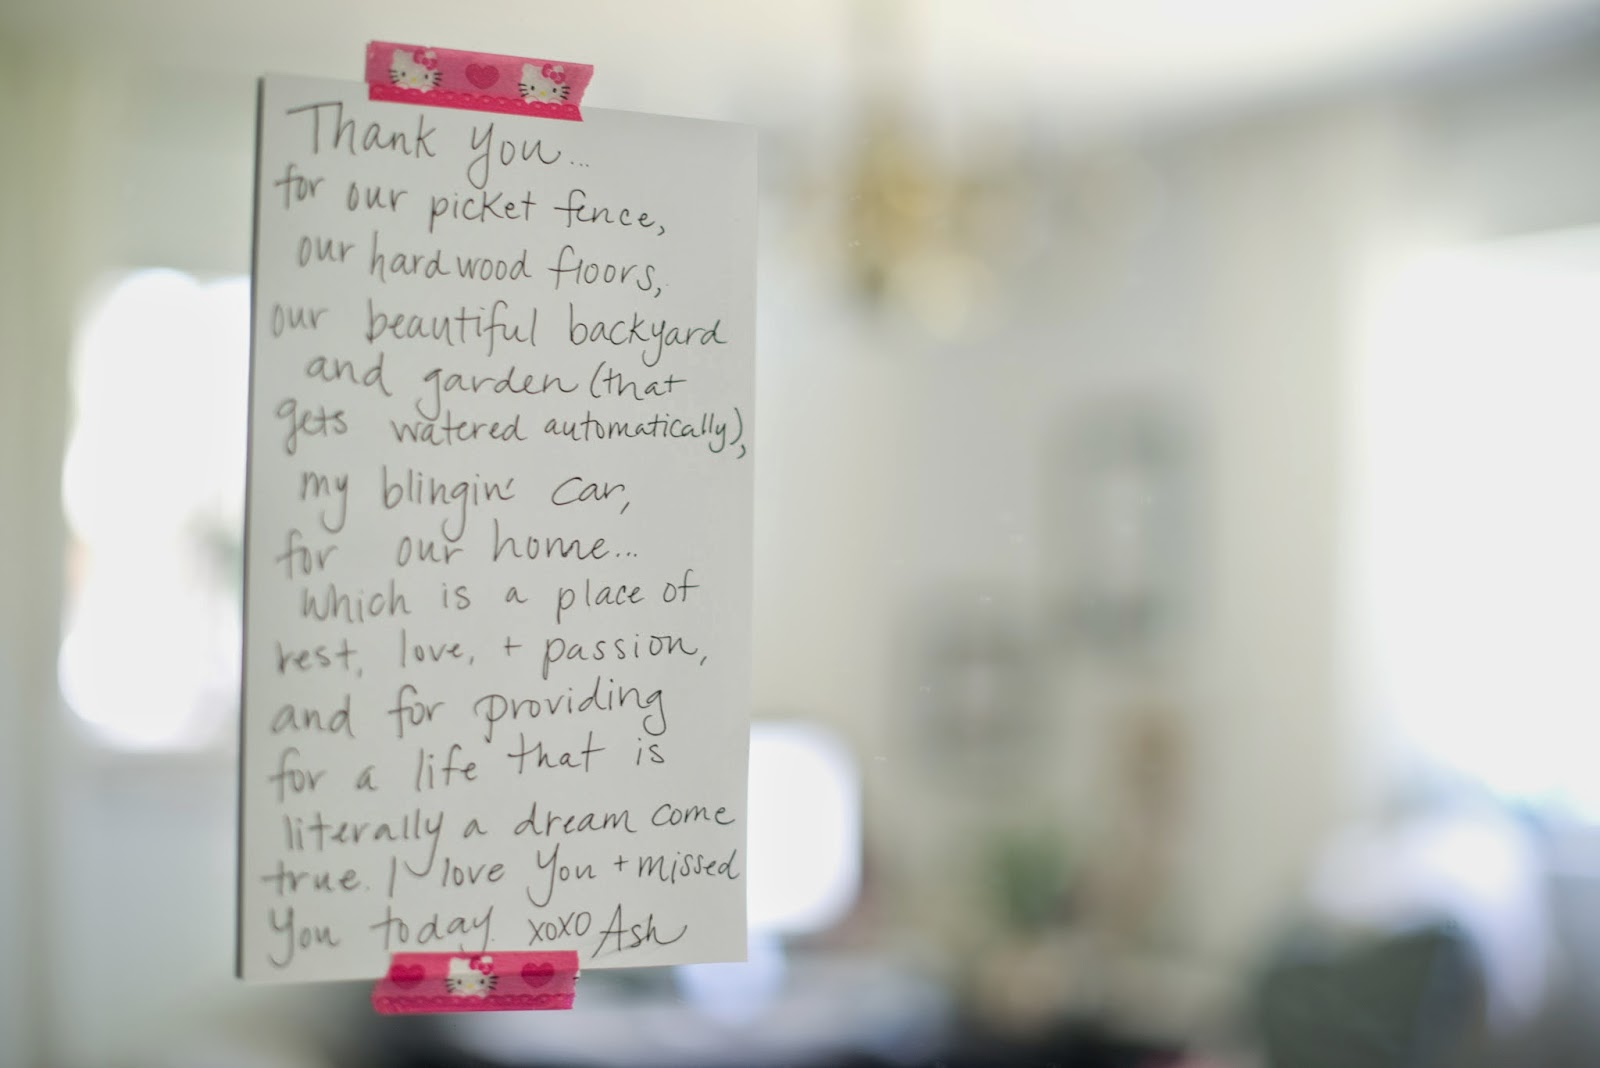 Thank you...
for our picket fence,
our hardwood floors,
our beautiful backyard
and garden (that
gets watered automatically),
my blingin' car,
for our home...
which is a place of
rest, love, + passion,
and for providing
for a life that is
literally a dream come
true. I love you + missed
you today. xoxo Ash